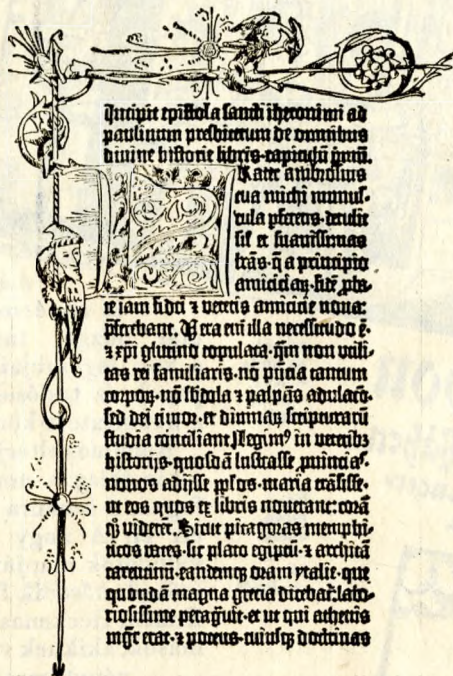 Incipit epistola sancti iheronimi ad
paulinum presbiterum de omnibus
divine historie libris·capitulū pmū.
Frater ambrosius
tua michi munus-
cula pferens·detulit
sil' et suavissimas
lrās·q̄ a principio
amiciciaꝝ·fidē pba-
te iam fidei ⁊ veteris amicicie nova:
pferebant. Vera eni illa necessitudo ē·
⁊ xpi glutino copulata·qm non utili-
tas rei familiaris·nō pncia tantum
corpoꝝ·nō sbdola ⁊ palpās adulacō·
sed dei timor·et divinaꝝ scripturarū
studia conciliant. Legim⁹ in veteribꝫ
historijs·quosdā lustrasse provincias·
novos adijsse pplos·maria trāsisse·
ut eos quos ex libris noverant: corā
qꝫ viderēt. Sicut pitagoras memphi-
ticos vates·sic plato egiptū·⁊ architā
tarentinū·eandemqꝫ oram ytalie·que
quondā magna grecia dicebat': labo-
riosissime peragvit·et ut qui athenis
mgr erat·⁊ potens·cuiusqꝫ doctrinas